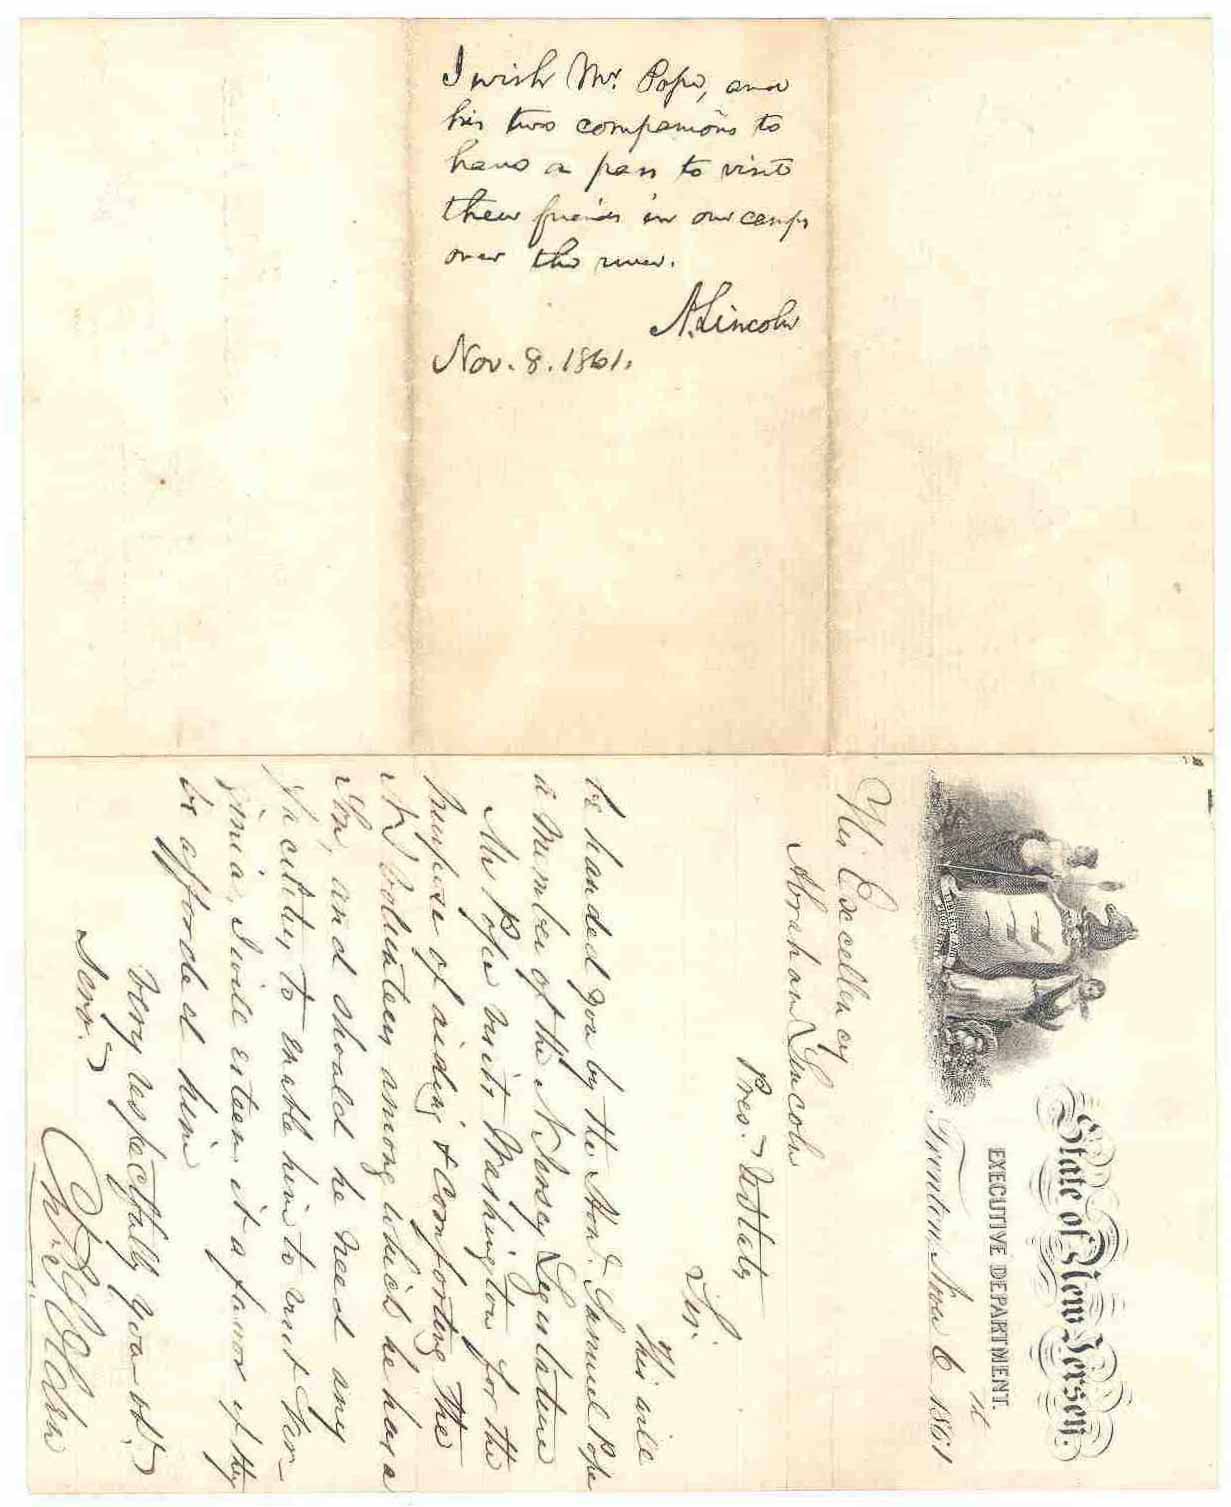 I wish Mr. Pope, and
his two companions to
have a pass to visit
their friends in our camps
over the river.
A. Lincoln
Nov. 8. 1861.
State of New Jersey.
EXECUTIVE DEPARTMENT.
Trenton, Nov 6th 1861
LIBERTY AND PROSPERITY
His Excellency
Abraham Lincoln
Pres. U States
Sir.
This will
be handed you by the Hon. Samuel Pope
a Member of the N Jersey Legislature
Mr Pope visits Washington for the
purpose of aiding & comforting the
NJ Volunteers among which he has a
Son, and should he need any
facility to enable him to visit Vir-
ginia, I will esteem it a favor if they
be afforded him
Very respectfully your obt.
Serv.
Chs. S. Olden